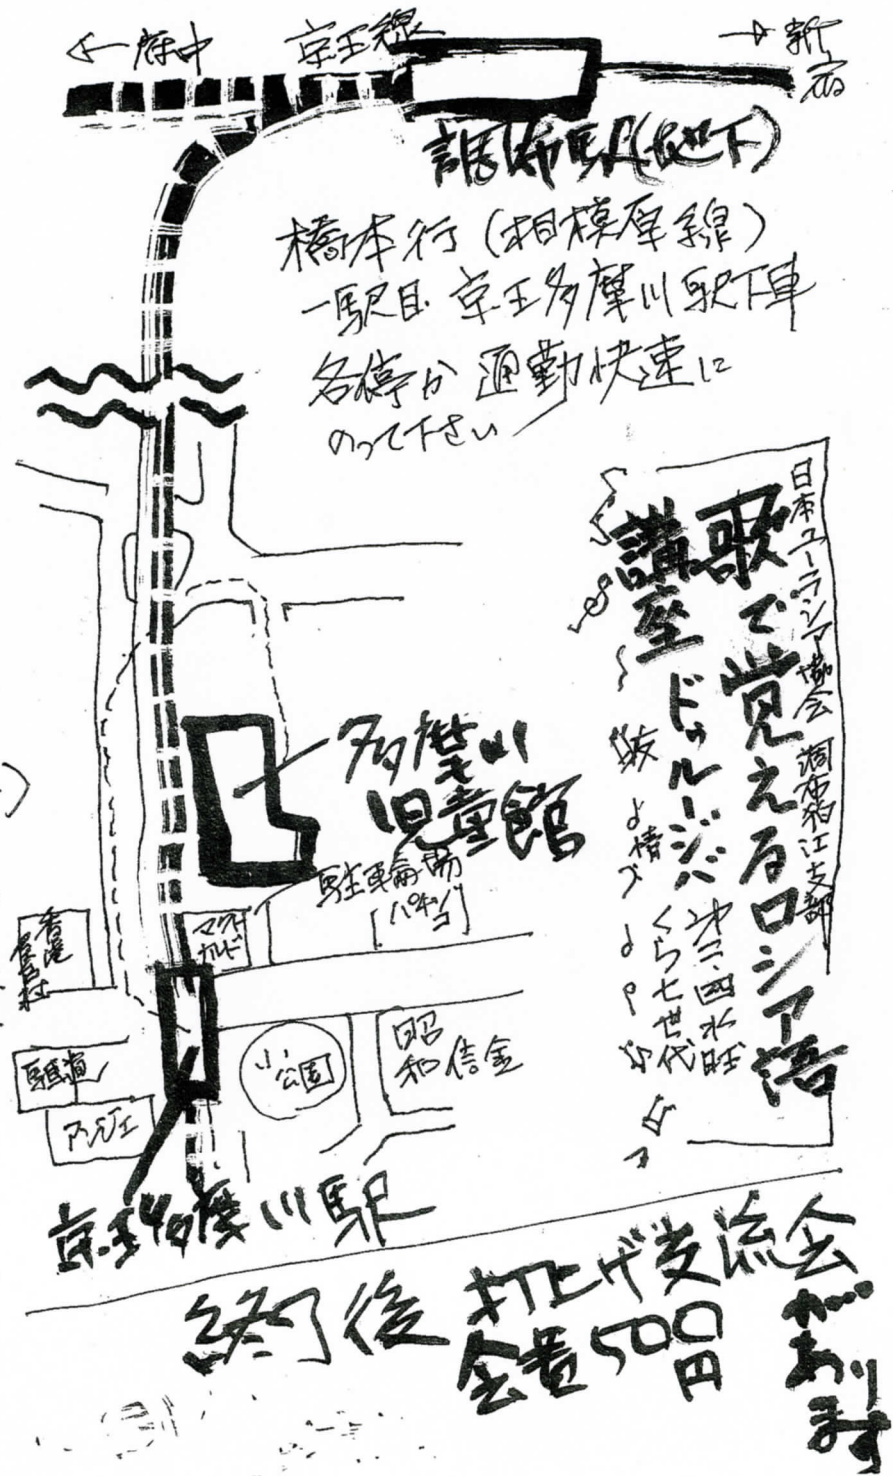 ←府中
京王線
→新宿
調布駅(地下)
橋本行(相模原線)
一駅目 京王多摩川駅下車
各停か通勤快速に
のって下さい
日本ユーラシア協会 調布狛江支部
歌で覚えるロシア語
講座
ドゥルージバ
第三・四水旺
くら七世代
多摩川
児童館
駐輪場
パチンコ
マクド
ナルド
香港
昭
和信金
小公園
アンジェ
京王多摩川駅
終了後 打上げ交流会
会費500円
があります